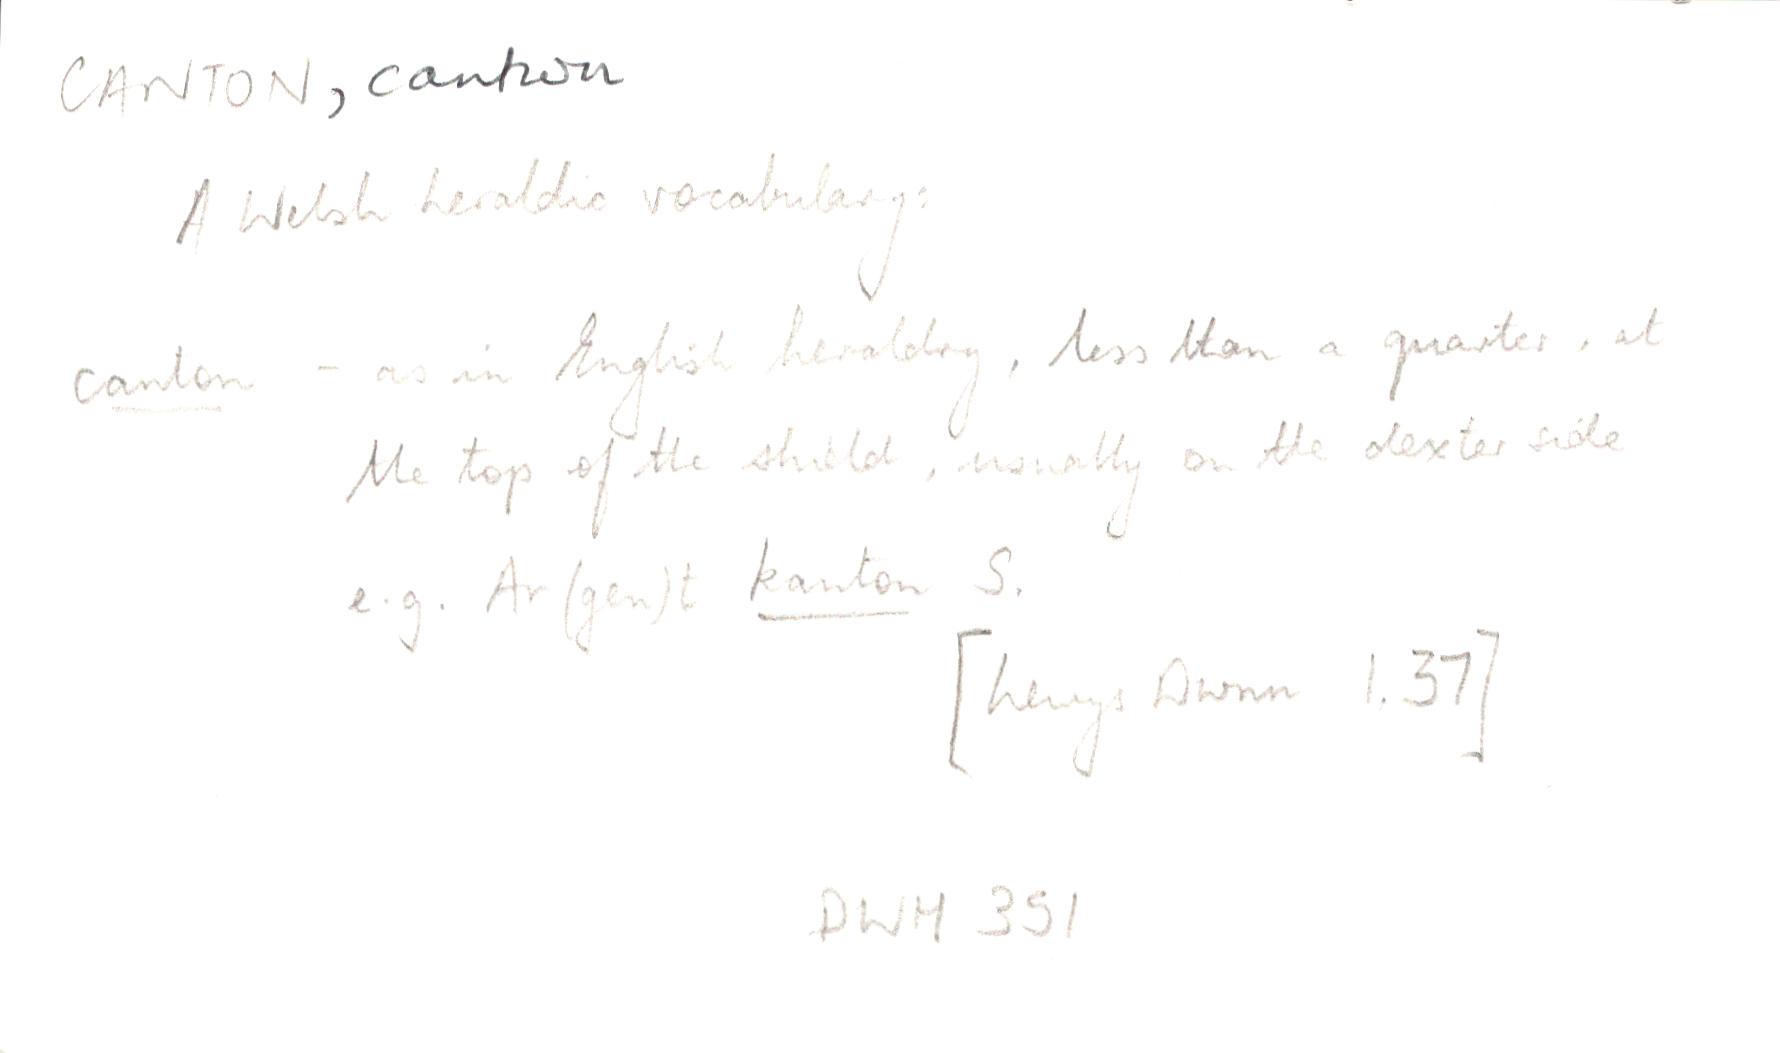 CANTON, cantwn
A Welsh heraldic vocabulary:
canton - as in English heraldry, less than a quarter, at
the top of the shield, usually on the dexter side
e.g. Ar(gen)t kanton S.
[Lewys Dwnn 1.37]
DWH 351